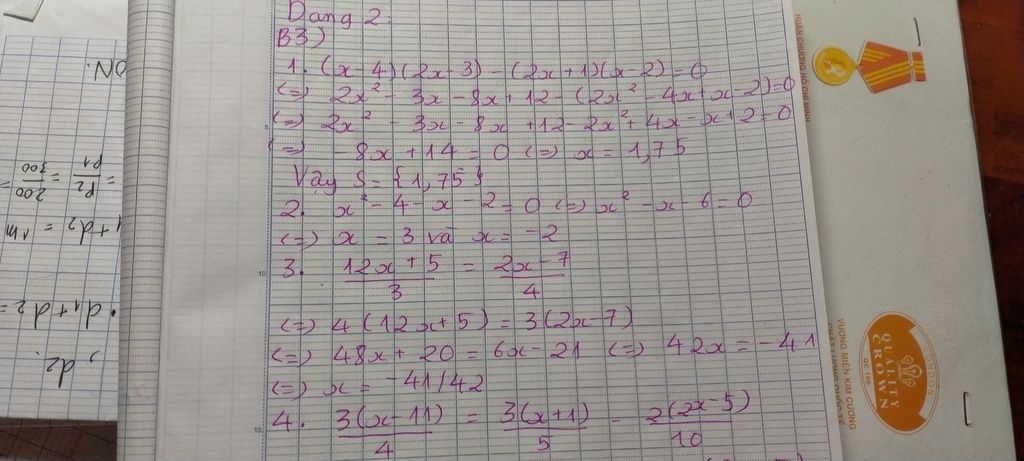 Dạng 2.
B3)
1. (x-4)(2x-3) - (2x+1)(x-2) = 0
(=) 2x² - 3x - 8x + 12 - (2x² - 4x + x - 2) = 0
(=) 2x² - 3x - 8x + 12 - 2x² + 4x - x + 2 = 0
(=) -8x + 14 = 0 (=) x = 1,75
Vậy S = {1,75}
2. x² - 4 - x - 2 = 0 (=) x² - x - 6 = 0
(=) x = 3 và x = -2
3. (12x+5)/3 = (2x-7)/4
(=) 4(12x+5) = 3(2x-7)
(=) 48x + 20 = 6x - 21 (=) 42x = -41
(=) x = -41/42
4. 3(x-11)/4 = 3(x+1)/5 - 2(2x-5)/10
5
10
15
ON.
= P2/P1 = 200/300 =
1 + d2 = 1m
d1 + d2 =
, d2.
HUÂN CHƯƠNG HỒ CHÍ MINH
VƯƠNG MIỆN KIM CƯƠNG
QUALITY
CROWN